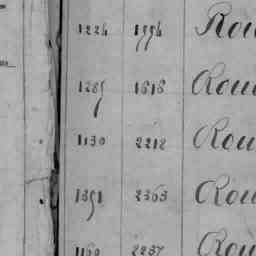 1224 1994 Rou
1289 1616 Rou
1130 2212 Rou
1351 2363 Rou
1160 2237 Rou